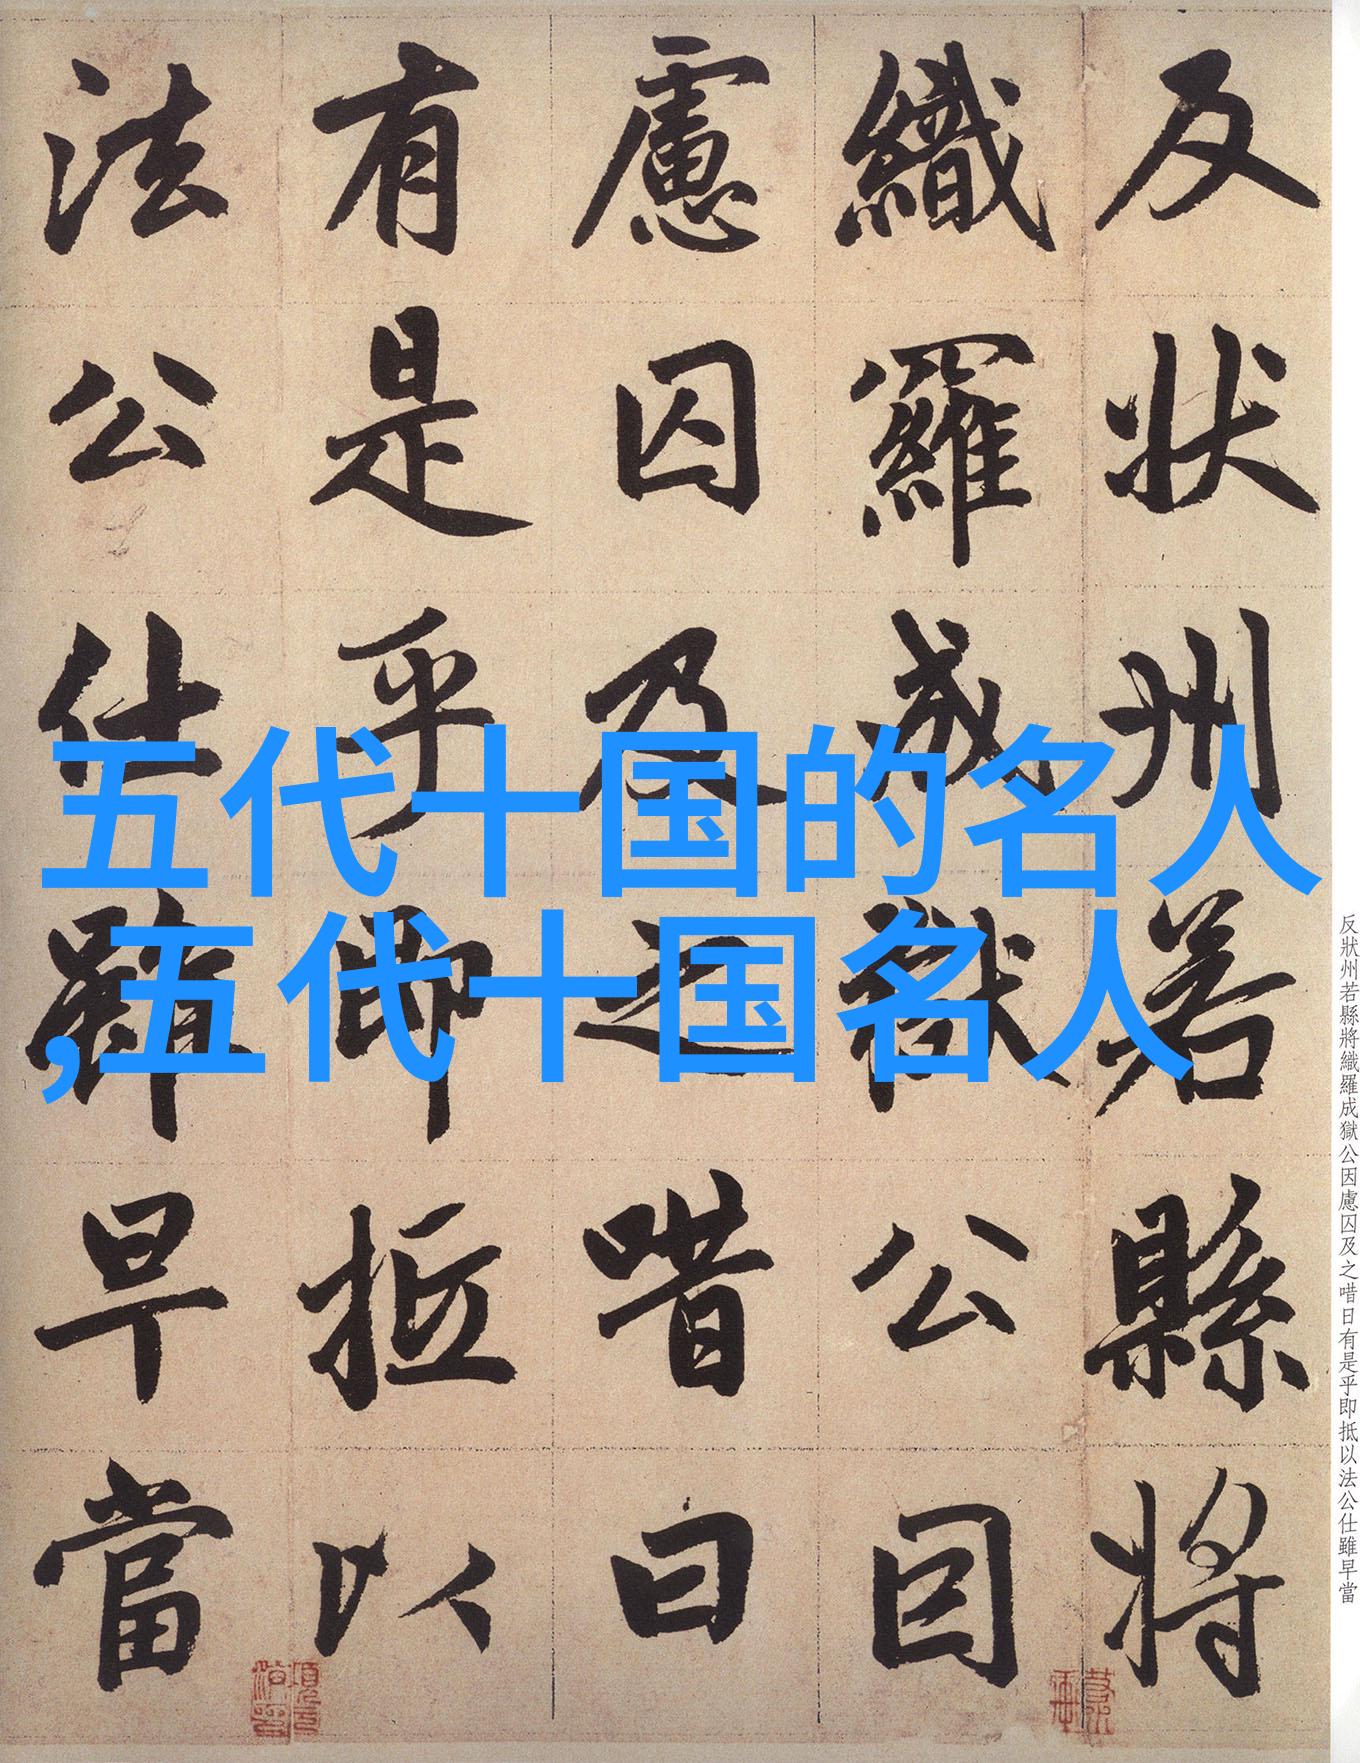 反状州若縣将
織羅成獄公因
慮囚及之唶曰
有是乎即抵以
法公仕雖早當
五代十国的名人
,五代十国名人
反狀州若縣將織羅成獄公因慮囚及之唶日有是乎即抵以法公仕雖早當